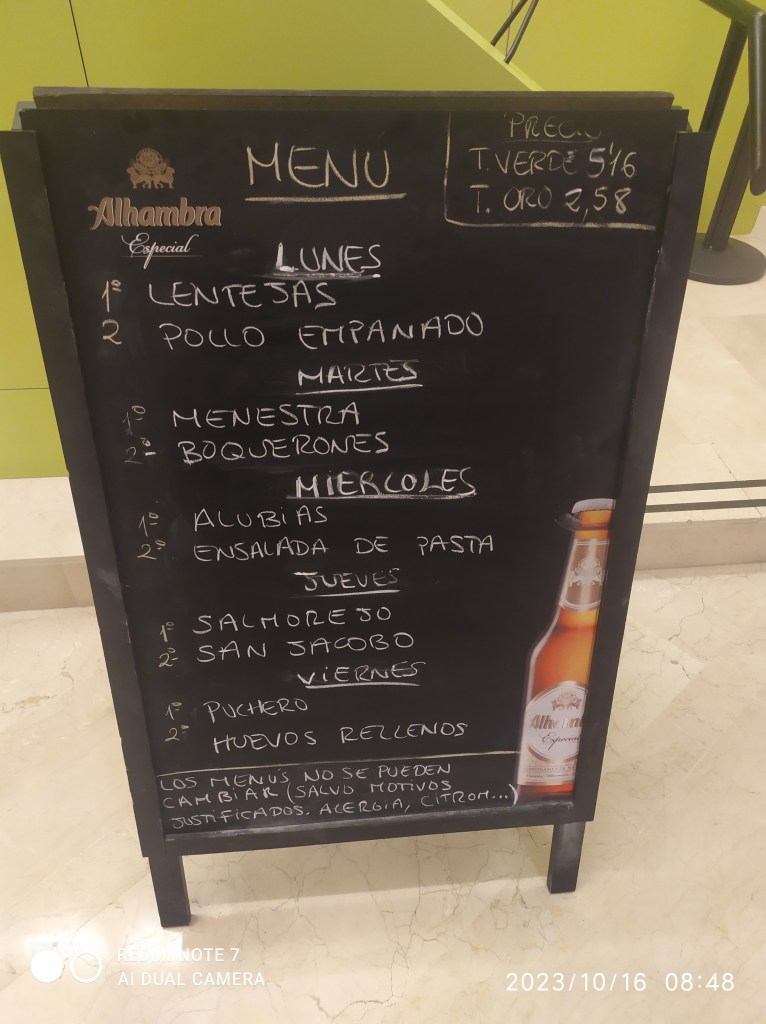 Alhambra
Especial
MENU
PRECIO
T. VERDE 5'16
T. ORO 2,58
LUNES
1º LENTEJAS
2 POLLO EMPANADO
MARTES
1º MENESTRA
2º BOQUERONES
MIERCOLES
1º ALUBIAS
2º ENSALADA DE PASTA
JUEVES
1º SALMOREJO
2º SAN JACOBO
VIERNES
1º PUCHERO
2º HUEVOS RELLENOS
LOS MENUS NO SE PUEDEN
CAMBIAR (SALVO MOTIVOS
JUSTIFICADOS. ALERGIA, CITROM...)
Alhambra
Especial
REDMI NOTE 7
AI DUAL CAMERA
2023/10/16 08:48